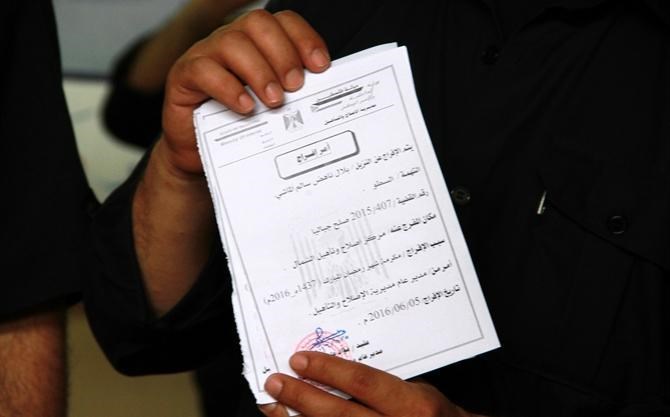 دولة فلسطين
مديرية الإصلاح والتأهيل
أمر إفراج
يتم الإفراج عن النزيل / بلال ناهض سالم الماشي
التهمة / السطو
رقم القضية / 2015/407 صلح جباليا
مكان المفرج عنه / مركز إصلاح وتأهيل الشمال .
سبب الإفراج / مكرمة شهر رمضان المبارك (1437ه_2016م)
أمر من / مدير عام مديرية الإصلاح والتأهيل .
تاريخ الإفراج /2016/06/05م .
عقيد /
مدير عام